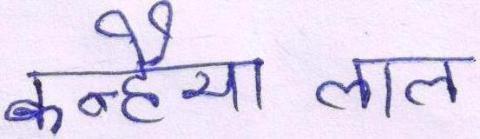 कन्हैया लाल